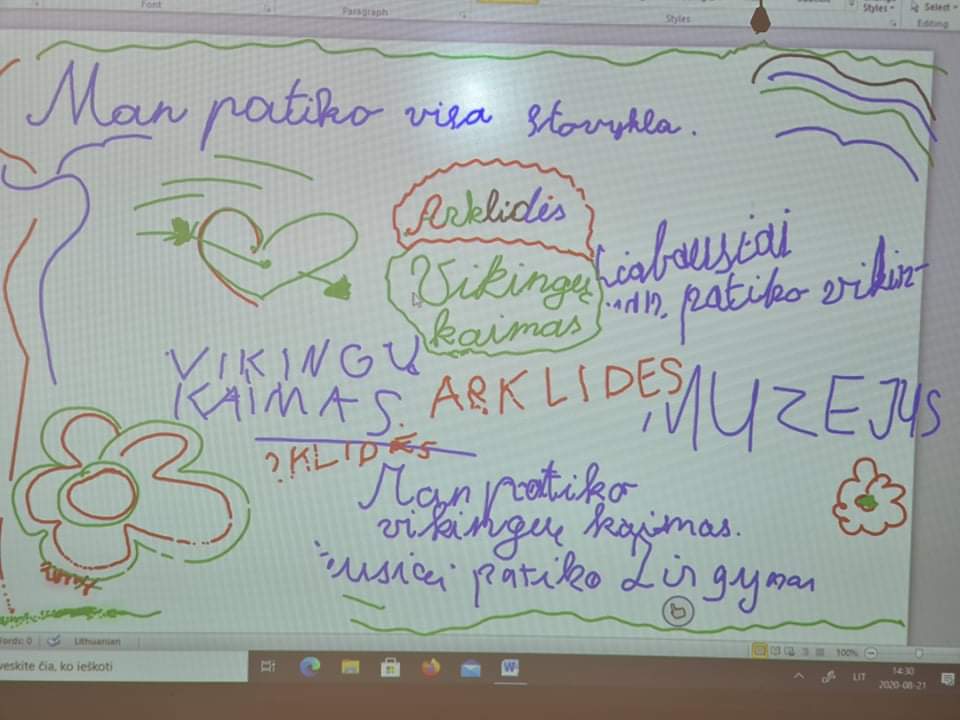 Font
Paragraph
Styles
Styles
Select
Editing
Man patiko visa stovykla.
Arklidės
Vikingų
kaimas
Labiausiai
patiko vikin-
VIKINGŲ
KAIMAS.
ARKLIDES
MUZEJUS
KLIDĖS
Man patiko
vikingų kaimas.
patiko Žirgynas
Words: 0
Lithuanian
100%
veskite čia, ko ieškoti
LIT
14:30
2020-08-21